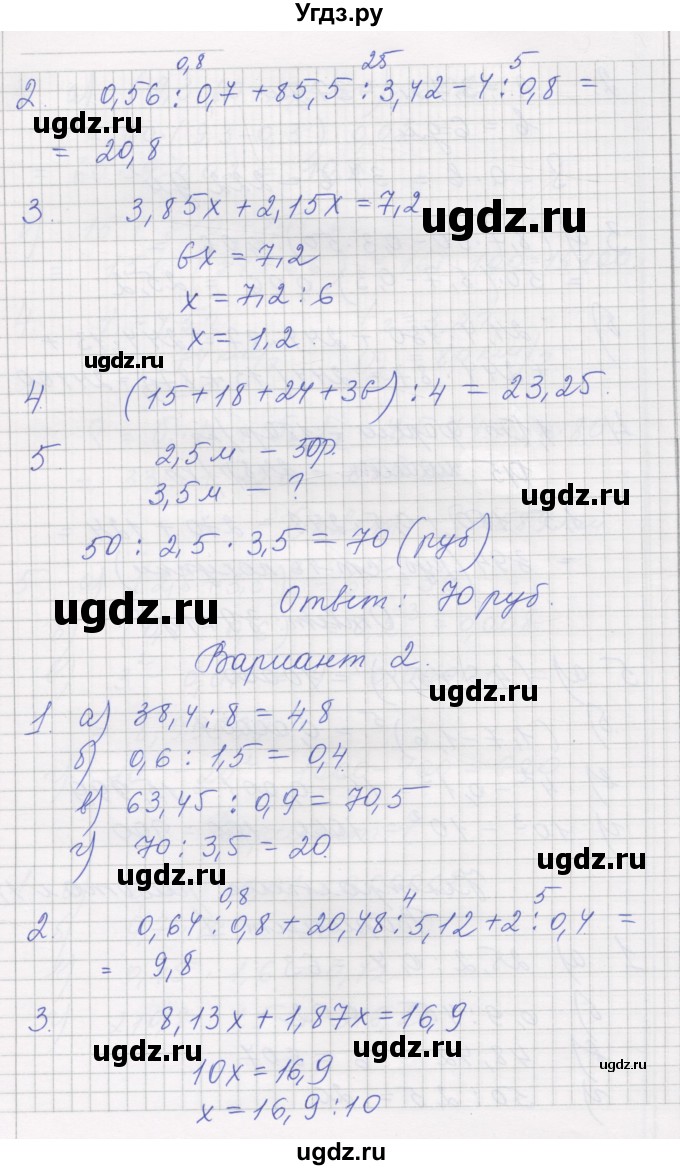 Угдз.ру
0,8 25 5
2. 0,56 : 0,7 + 85,5 : 3,42 - 4 : 0,8 =
ugdz.ru
= 20,8
3. 3,85x + 2,15x = 7,2
ugdz.ru
6x = 7,2
x = 7,2 : 6
x = 1,2.
ugdz.ru
4. (15 + 18 + 24 + 36) : 4 = 23,25.
5. 2,5м - 50р.
3,5м - ?
ugdz.ru
50 : 2,5 · 3,5 = 70 (руб).
ugdz.ru
Ответ: 70 руб.
Вариант 2.
ugdz.ru
1. а) 38,4 : 8 = 4,8
б) 0,6 : 1,5 = 0,4.
в) 63,45 : 0,9 = 70,5
г) 70 : 3,5 = 20.
ugdz.ru
ugdz.ru
0,8 4 5
2. 0,64 : 0,8 + 20,48 : 5,12 + 2 : 0,4 =
= 9,8
3. 8,13x + 1,87x = 16,9
ugdz.ru
ugdz.ru
ugdz.ru
10x = 16,9
x = 16,9 : 10
ugdz.ru